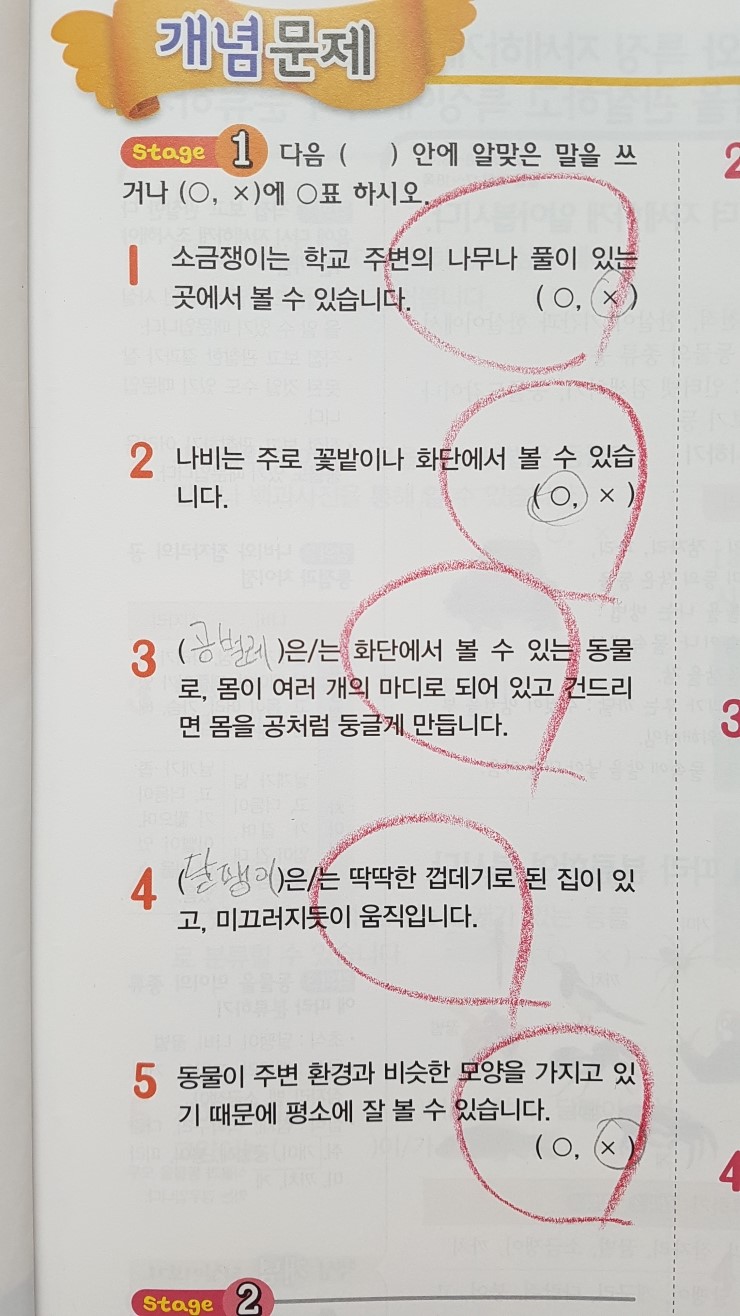 개념 문제
Stage 1 다음 ( ) 안에 알맞은 말을 쓰
거나 (○, ×)에 ○표 하시오.
1 소금쟁이는 학교 주변의 나무나 풀이 있는
곳에서 볼 수 있습니다. ( ○, × )
2 나비는 주로 꽃밭이나 화단에서 볼 수 있습
니다. ( ○, × )
3 (공벌레)은/는 화단에서 볼 수 있는 동물
로, 몸이 여러 개의 마디로 되어 있고 건드리
면 몸을 공처럼 둥글게 만듭니다.
4 (달팽이)은/는 딱딱한 껍데기로 된 집이 있
고, 미끄러지듯이 움직입니다.
5 동물이 주변 환경과 비슷한 모양을 가지고 있
기 때문에 평소에 잘 볼 수 있습니다.
( ○, × )
Stage 2
2
3
4